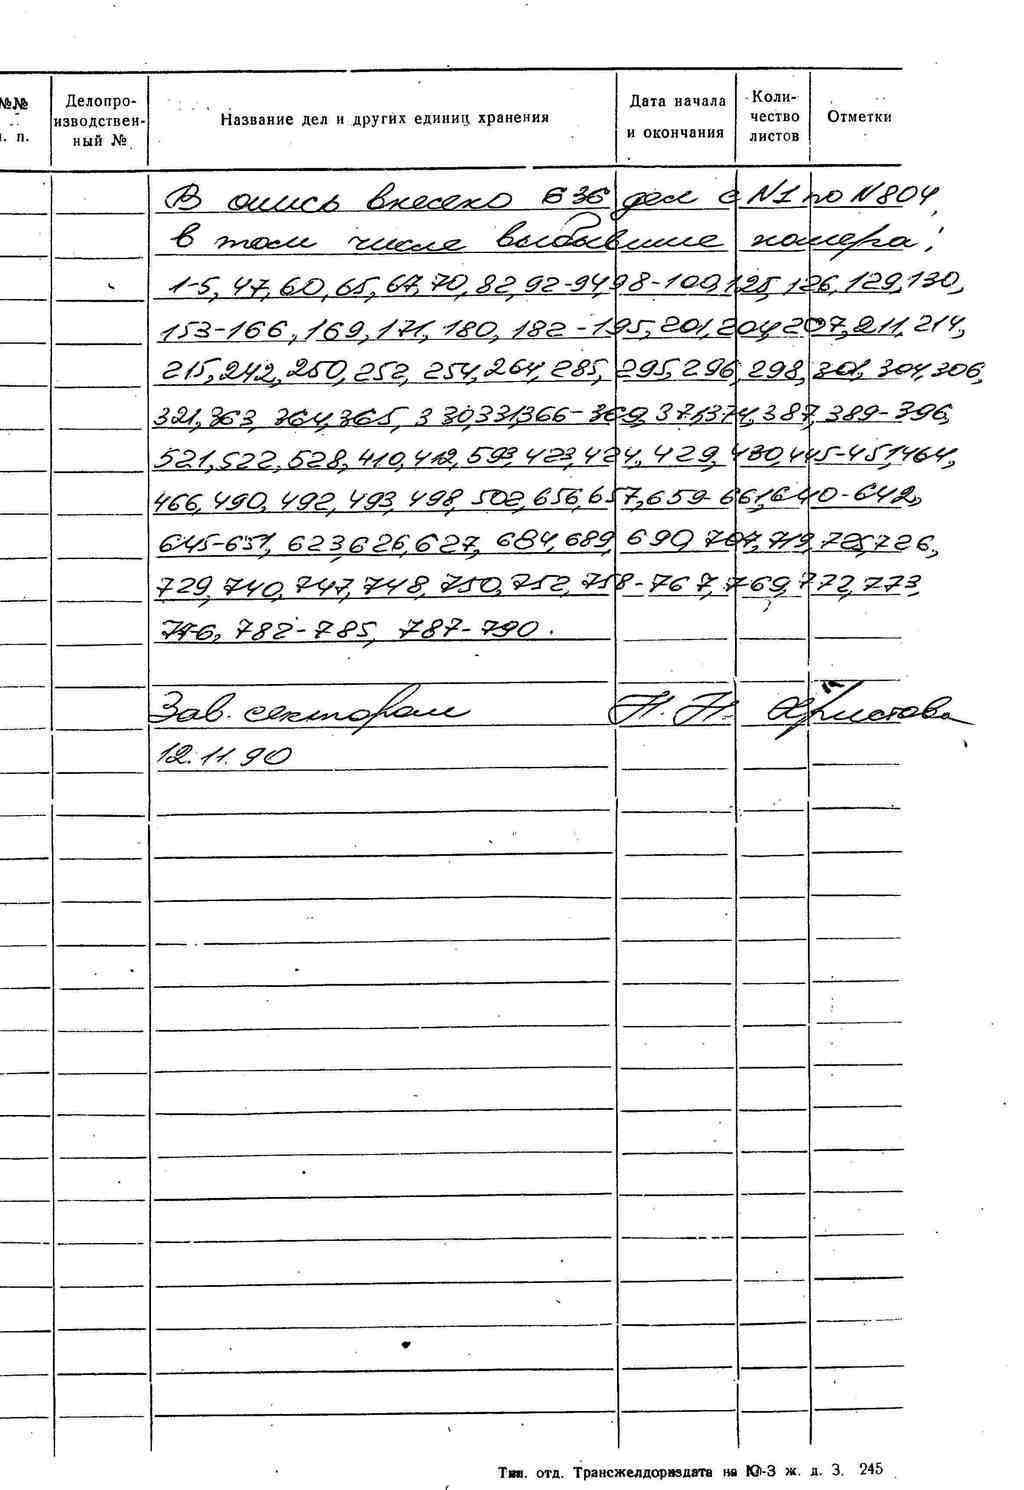 №№ п. п.
Делопро-
изводствен-
ный №
Название дел и других единиц хранения
Дата начала
и окончания
Коли-
чество
листов
Отметки
В опись внесено 636 дел с N1 по N804
в том числе выбывшие номера:
1-5, 47, 60, 65, 67, 70, 82, 92-94, 98-100, 125, 126, 129, 130,
153-166, 169, 171, 180, 182-195, 201, 204, 207, 211, 214,
215, 242, 250, 252, 254, 264, 285, 295, 296, 298, 301, 304, 306,
321, 363, 364, 365, 330, 331, 366-369, 371, 374, 387, 389-396,
521, 522, 528, 410, 412, 593, 423, 424, 429, 430, 445-451, 464,
466, 490, 492, 493, 498, 502, 656, 657, 659-661, 640-642,
645-651, 623, 626, 627, 684, 689, 690, 707, 719, 725, 726,
729, 740, 747, 748, 750, 752, 758-767, 769, 772, 773,
776, 782-785, 787-790.
Зав. сектором Н. Н. Христова
12.11.90
Тип. отд. Трансжелдориздата на Ю-З ж. д. З. 245